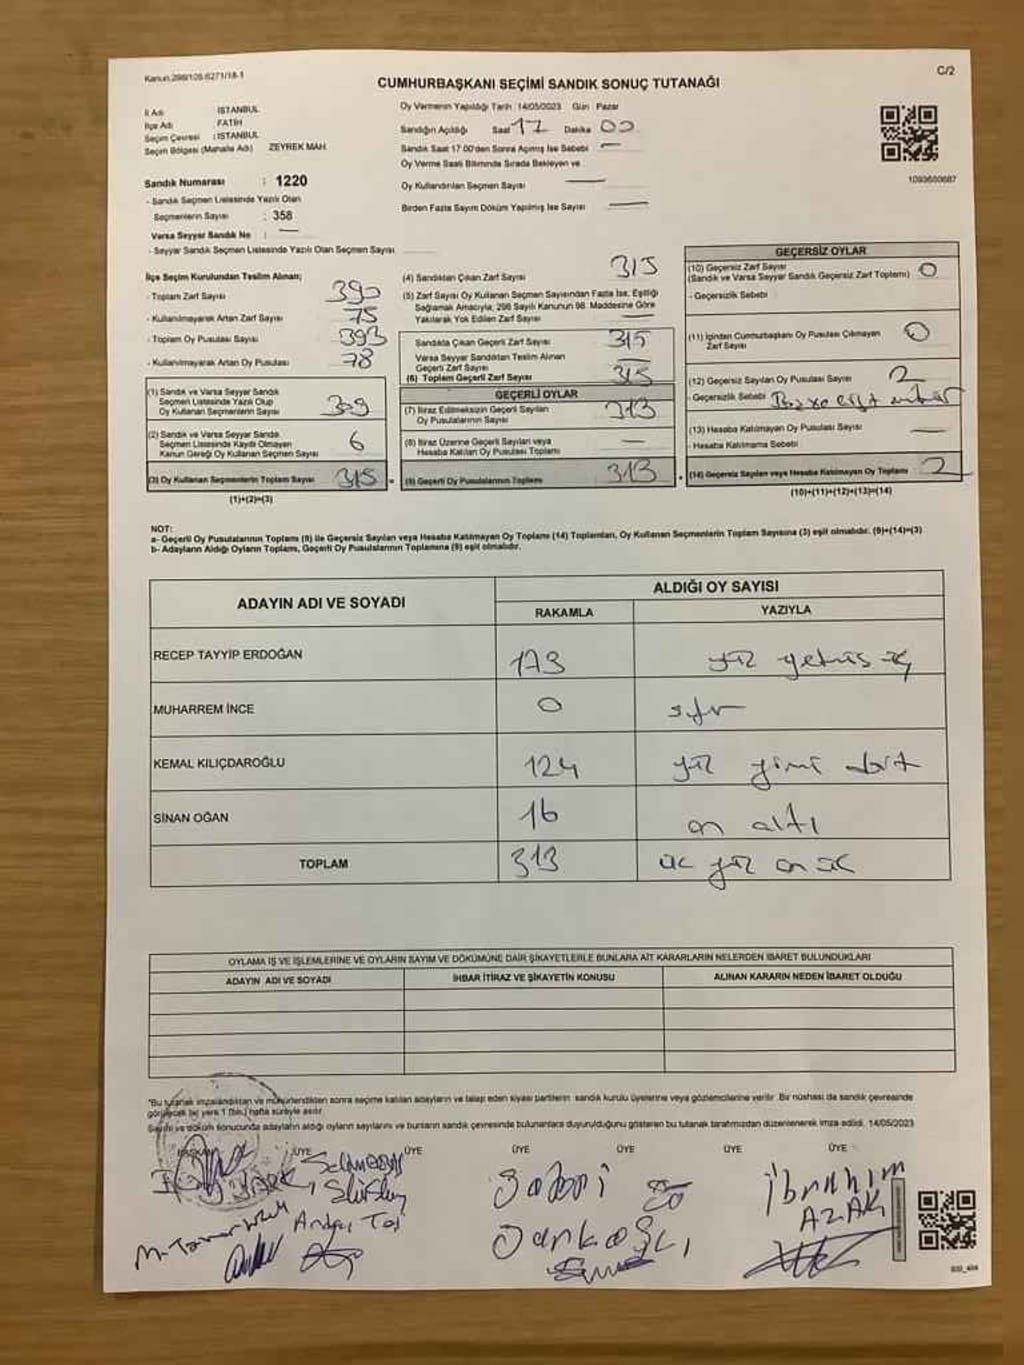 Kanun:298/105-6271/18-1
C/2
CUMHURBAŞKANI SEÇİMİ SANDIK SONUÇ TUTANAĞI
İl Adı İSTANBUL
İlçe Adı FATİH
Seçim Çevresi : İSTANBUL
Seçim Bölgesi (Mahalle Adı) ZEYREK MAH.
Oy Vermenin Yapıldığı Tarih 14/05/2023 Gün Pazar
Sandığın Açıldığı Saat 17 Dakika 00
Sandık Saat 17:00'den Sonra Açılmış İse Sebebi —
Oy Verme Saati Bitiminde Sırada Bekleyen ve
Oy Kullandırılan Seçmen Sayısı —
Birden Fazla Sayım Döküm Yapılmış İse Sayısı —
1093680687
Sandık Numarası : 1220
- Sandık Seçmen Listesinde Yazılı Olan
Seçmenlerin Sayısı : 358
Varsa Seyyar Sandık No : —
- Seyyar Sandık Seçmen Listesinde Yazılı Olan Seçmen Sayısı
İlçe Seçim Kurulundan Teslim Alınan;
- Toplam Zarf Sayısı 390
- Kullanılmayarak Artan Zarf Sayısı 75
- Toplam Oy Pusulası Sayısı 393
- Kullanılmayarak Artan Oy Pusulası 78
(1) Sandık ve Varsa Seyyar Sandık
Seçmen Listesinde Yazılı Olup
Oy Kullanan Seçmenlerin Sayısı 309
(2) Sandık ve Varsa Seyyar Sandık
Seçmen Listesinde Kaydı Olmayan
Kanun Gereği Oy Kullanan Seçmen Sayısı 6
(3) Oy Kullanan Seçmenlerin Toplam Sayısı 315
(1)+(2)=(3)
(4) Sandıktan Çıkan Zarf Sayısı 315
(5) Zarf Sayısı Oy Kullanan Seçmen Sayısından Fazla İse, Eşitliği
Sağlamak Amacıyla; 298 Sayılı Kanunun 98. Maddesine Göre
Yakılarak Yok Edilen Zarf Sayısı —
Sandıkta Çıkan Geçerli Zarf Sayısı 315
Varsa Seyyar Sandıktan Teslim Alınan
Geçerli Zarf Sayısı —
(6) Toplam Geçerli Zarf Sayısı 315
GEÇERLİ OYLAR
(7) İtiraz Edilmeksizin Geçerli Sayılan
Oy Pusulalarının Sayısı 313
(8) İtiraz Üzerine Geçerli Sayılan veya
Hesaba Katılan Oy Pusulası Toplamı —
(9) Geçerli Oy Pusulalarının Toplamı 313
GEÇERSİZ OYLAR
(10) Geçersiz Zarf Sayısı
(Sandık ve Varsa Seyyar Sandık Geçersiz Zarf Toplamı) 0
- Geçersizlik Sebebi
(11) İçinden Cumhurbaşkanı Oy Pusulası Çıkmayan
Zarf Sayısı 0
(12) Geçersiz Sayılan Oy Pusulası Sayısı 2
- Geçersizlik Sebebi
(13) Hesaba Katılmayan Oy Pusulası Sayısı —
- Hesaba Katılmama Sebebi
(14) Geçersiz Sayılan veya Hesaba Katılmayan Oy Toplamı 2
(10)+(11)+(12)+(13)=(14)
NOT:
a- Geçerli Oy Pusulalarının Toplamı (9) ile Geçersiz Sayılan veya Hesaba Katılmayan Oy Toplamı (14) Toplamları, Oy Kullanan Seçmenlerin Toplam Sayısına (3) eşit olmalıdır. (9)+(14)=(3)
b- Adayların Aldığı Oyların Toplamı, Geçerli Oy Pusulalarının Toplamına (9) eşit olmalıdır.
ADAYIN ADI VE SOYADI
ALDIĞI OY SAYISI
RAKAMLA YAZIYLA
RECEP TAYYİP ERDOĞAN 173 yüz yetmiş üç
MUHARREM İNCE 0 sıfır
KEMAL KILIÇDAROĞLU 124 yüz yirmi dört
SİNAN OĞAN 16 on altı
TOPLAM 313 üç yüz on üç
OYLAMA İŞ VE İŞLEMLERİNE VE OYLARIN SAYIM VE DÖKÜMÜNE DAİR ŞİKAYETLERLE BUNLARA AİT KARARLARIN NELERDEN İBARET BULUNDUKLARI
ADAYIN ADI VE SOYADI İHBAR İTİRAZ VE ŞİKAYETİN KONUSU ALINAN KARARIN NEDEN İBARET OLDUĞU
"Bu tutanak imzalandıktan ve mühürlendikten sonra seçime katılan adayların ve talep eden siyasi partilerin sandık kurulu üyelerine veya gözlemcilerine verilir. Bir nüshası da sandık çevresinde
görülecek bir yere 1 (bir) hafta süreyle asılır.
Sayım ve döküm sonucunda adayların aldığı oyların sayılarını ve bunların sandık çevresinde bulunanlara duyurulduğunu gösteren bu tutanak tarafımızdan düzenlenerek imza edildi. 14/05/2023
BAŞKAN ÜYE ÜYE ÜYE ÜYE ÜYE ÜYE
İbrahim
AZAK